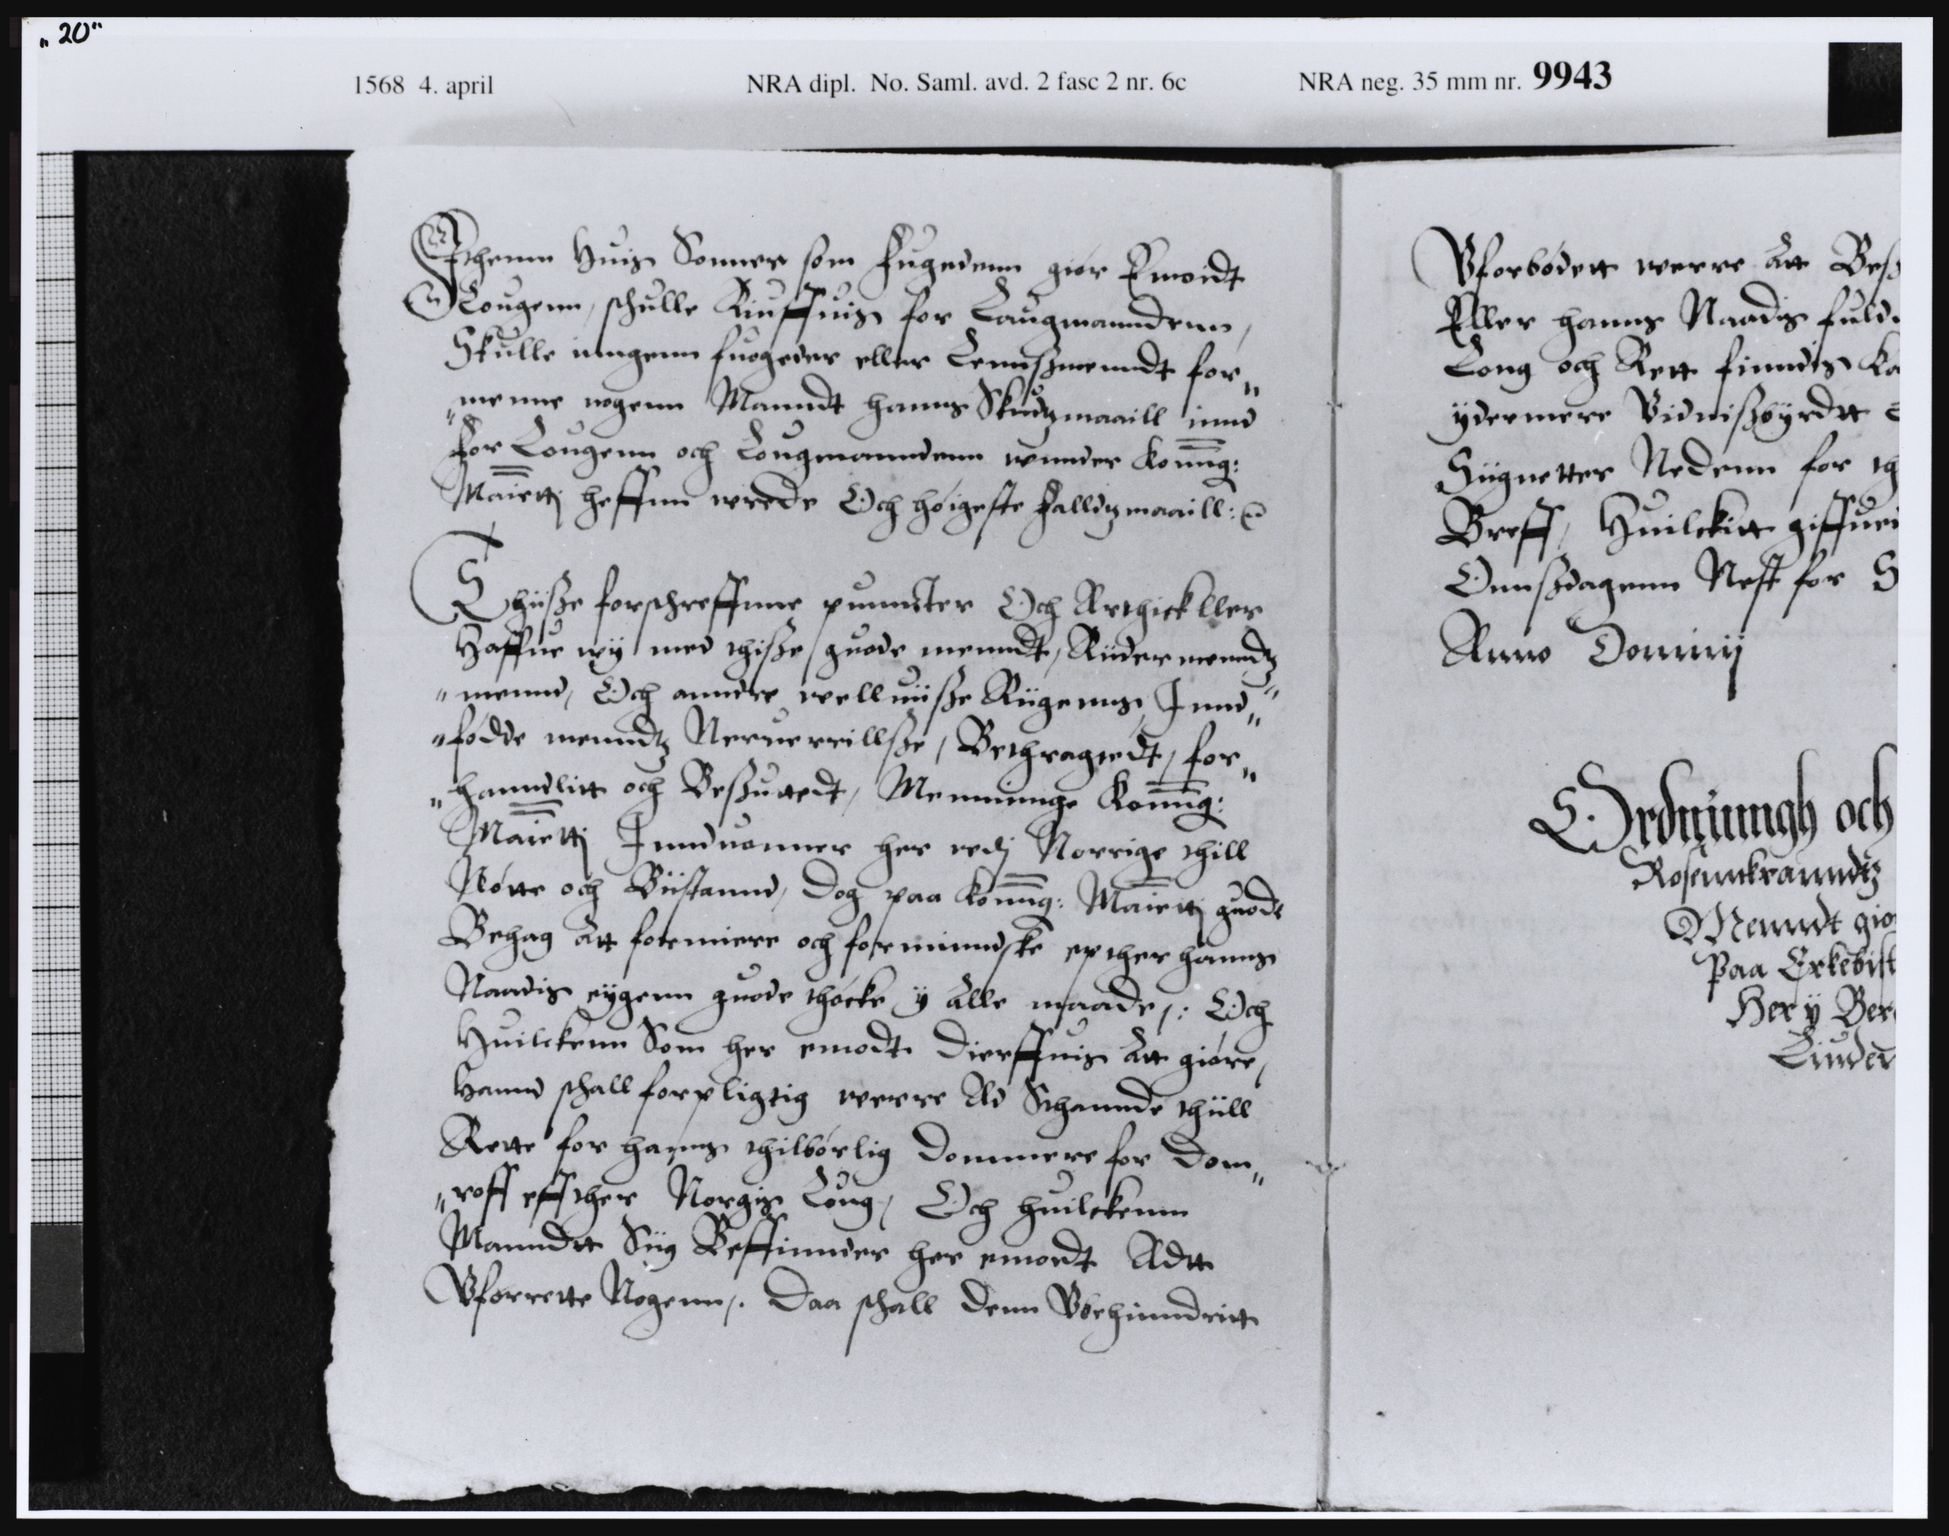 „20“
1568 4. april NRA dipl. No. Saml. avd. 2 fasc 2 nr. 6c NRA neg. 35 mm nr. 9943
Ithenn Huis Domer som fugedenn giør Emoidt
Lougenn, schulle Kiuffuis for Laugmanndenn,
Skulle inngenn fuogeder eller Lennßmenndt for„
„menne nogenn Manndt hanns Skudzmaaill innd
for Lougenn och Lougmanndenn wnnder Konng:
Maietij heffnn wrede Och høigeste falldzmaaill:
Thiisse forschreffnne punncter Och Arthickller
Haffue wÿ med thisse guode menndt, Riidermenndz„
„mennd, Och anndre wellwiisse Riigenns Innd„
„fødde menndz Neruerrillsse, Bethragtedt, for„
„hanndlitt och Besluttedt, Menninge Konng:
Maietij Innduonner her vdj Norrige thill
Nøtte och Biistannd, Dog paa Konng: Maietij guode
Behag att formiere och forminndske epther hanns
Naadis eÿgenn guode thøcke ÿ alle maade,: Och
Huilckenn Som her emodt Dierffuis att giøre,
Hannd schall forpligtig werre Ad Sthannde thiill
Rette for hanns thilbørlig Dommere for Dom„
„roff effther Norgis Loug, Och huilckenn
Manndtt Siig Beffinnder her emodt Adtt
Vforrette Nogenn,. Daa schall denn Vbehinndritt
Vforbødett werre att Bes
Eller hanns Naadis fuld
Loug och Rett finndis Ka
ÿdermere Vidnissbÿrdtt
Siignetter Nedenn for th
Breff, Huilckitt giffuei
Onnssdagenn Nest for S
Anno Dominij
Ordnünngh och
Rosennkranndtz
Menndt gio
Paa Erkebist
Her ÿ Ber
Linder